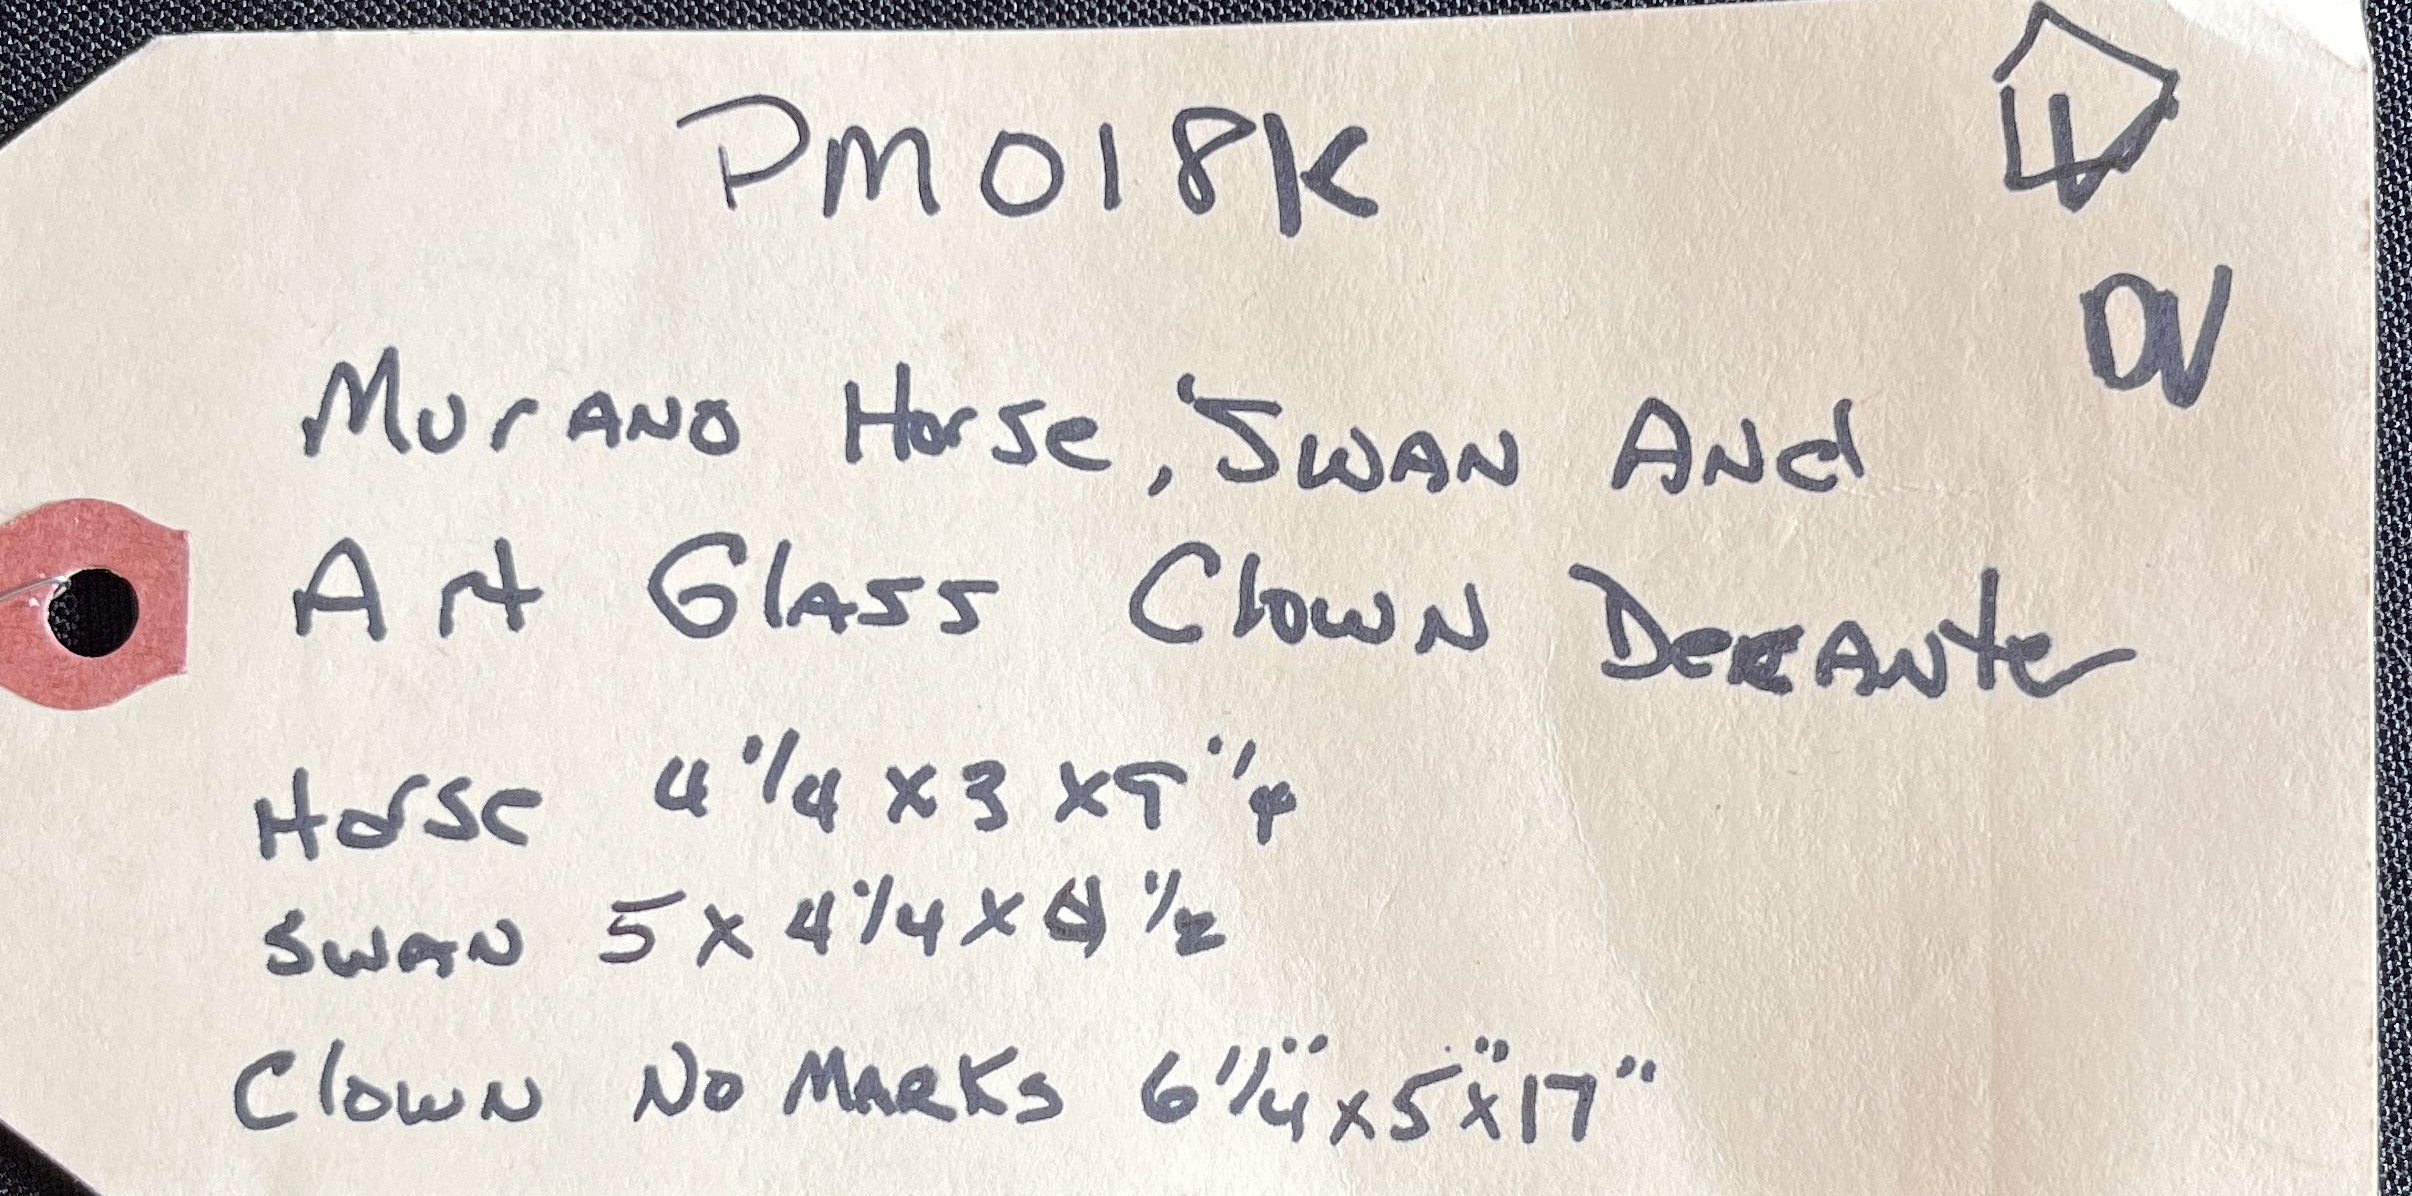 PM018K
DV
Murano Horse, Swan And
Art Glass Clown Decanter
Horse 4 1/4 x 3 x 5 1/4
Swan 5 x 4 1/4 x 4 1/2
Clown No Marks 6 1/4" x 5" x 17"